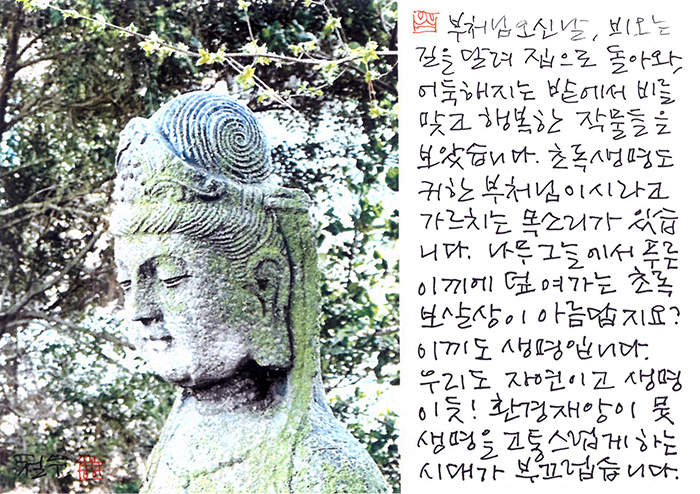 부처님오신날, 비오는
길을 달려 집으로 돌아와,
어둑해지는 밭에서 비를
맞고 행복한 작물들을
보았습니다. 초록생명도
귀한 부처님이시라고
가르치는 목소리가 있습
니다. 나무그늘에서 푸른
이끼에 덮여가는 초록
보살상이 아름답지요?
이끼도 생명입니다.
우리도 자연이고 생명
이듯! 환경재앙이 뭇
생명을 고통스럽게 하는
시대가 부끄럽습니다.